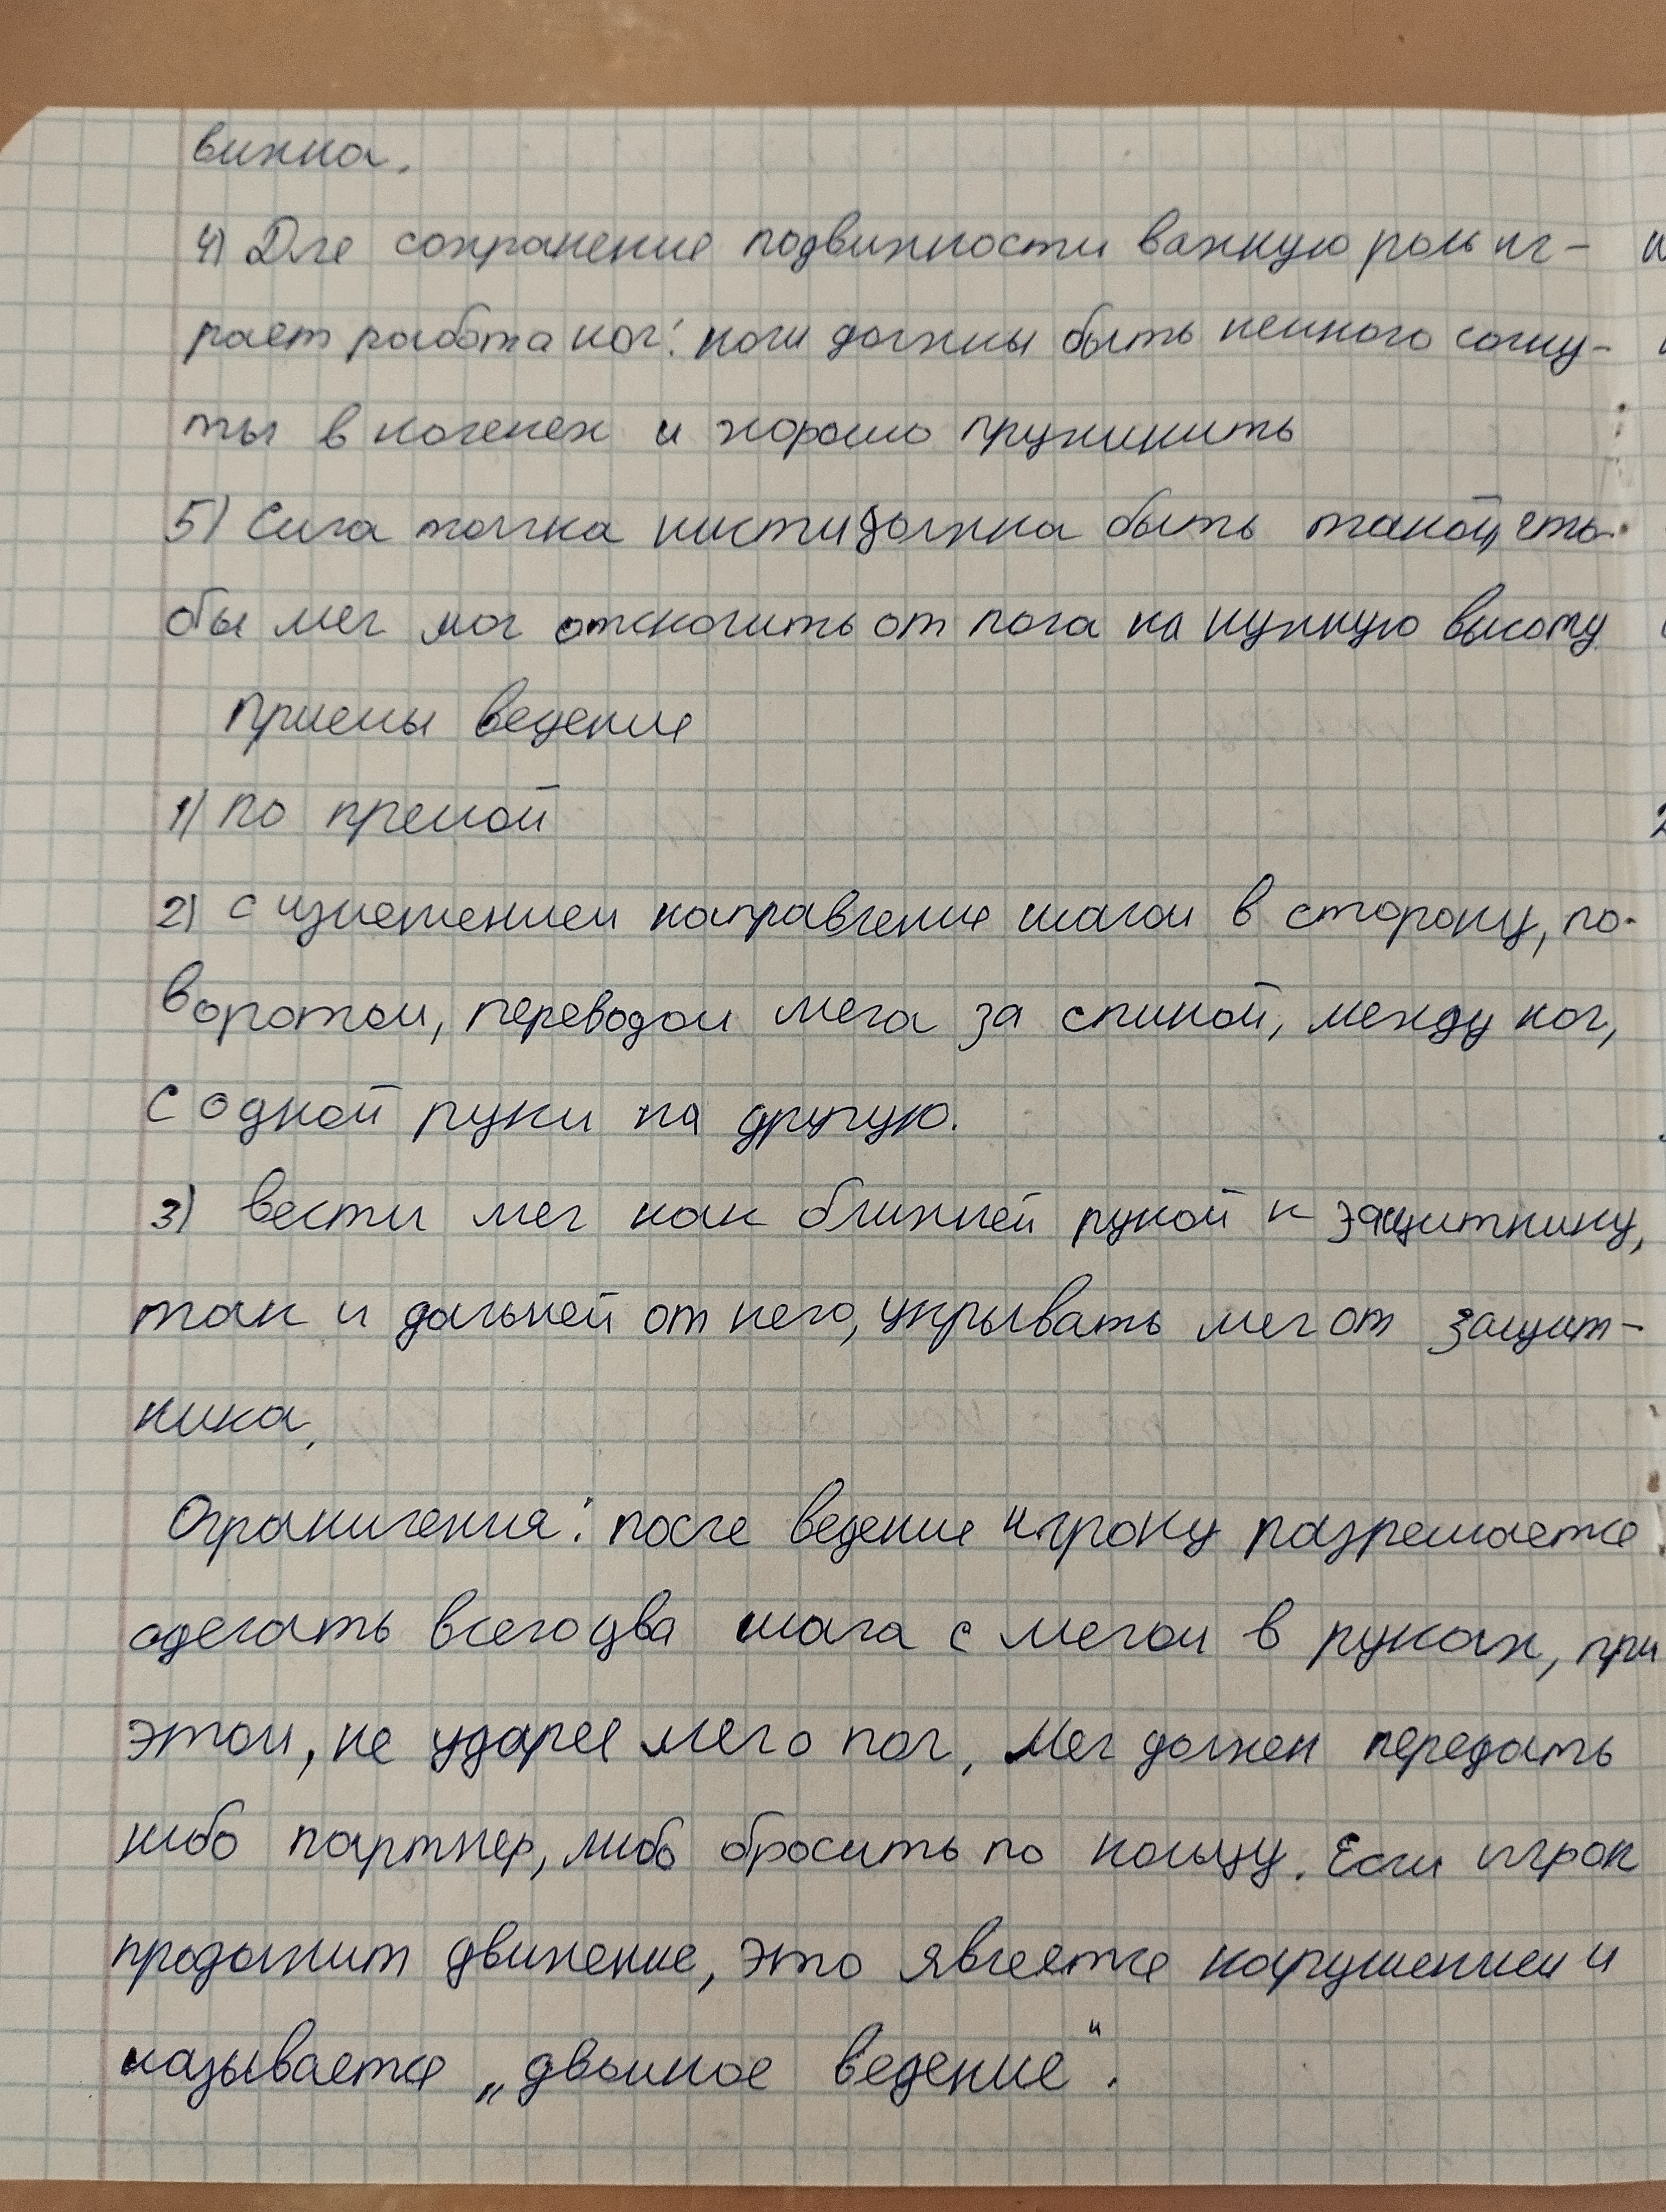 вижна.
4) Для сохранения подвижности важную роль иг-
рает работа ног: ноги должны быть немного согну-
ты в коленях и хорошо пружинить
5) Сила толчка кисти должна быть такой, что-
бы мяч мог отскочить от пола на нужную высоту
Приемы ведения
1) по прямой
2) с изменением направления шагом в сторону, по-
воротом, переводом мяча за спиной, между ног,
с одной руки на другую.
3) вести мяч как ближней рукой к защитнику,
так и дальней от него, укрывать мяч от защит-
ника.
Ограничения: после ведения игроку разрешается
сделать всего два шага с мячом в руках, при
этом, не ударяя мяч о пол, мяч должен передать
либо партнер, либо бросить по кольцу. Если игрок
продолжит движение, это является нарушением и
называется „двойное ведение“.